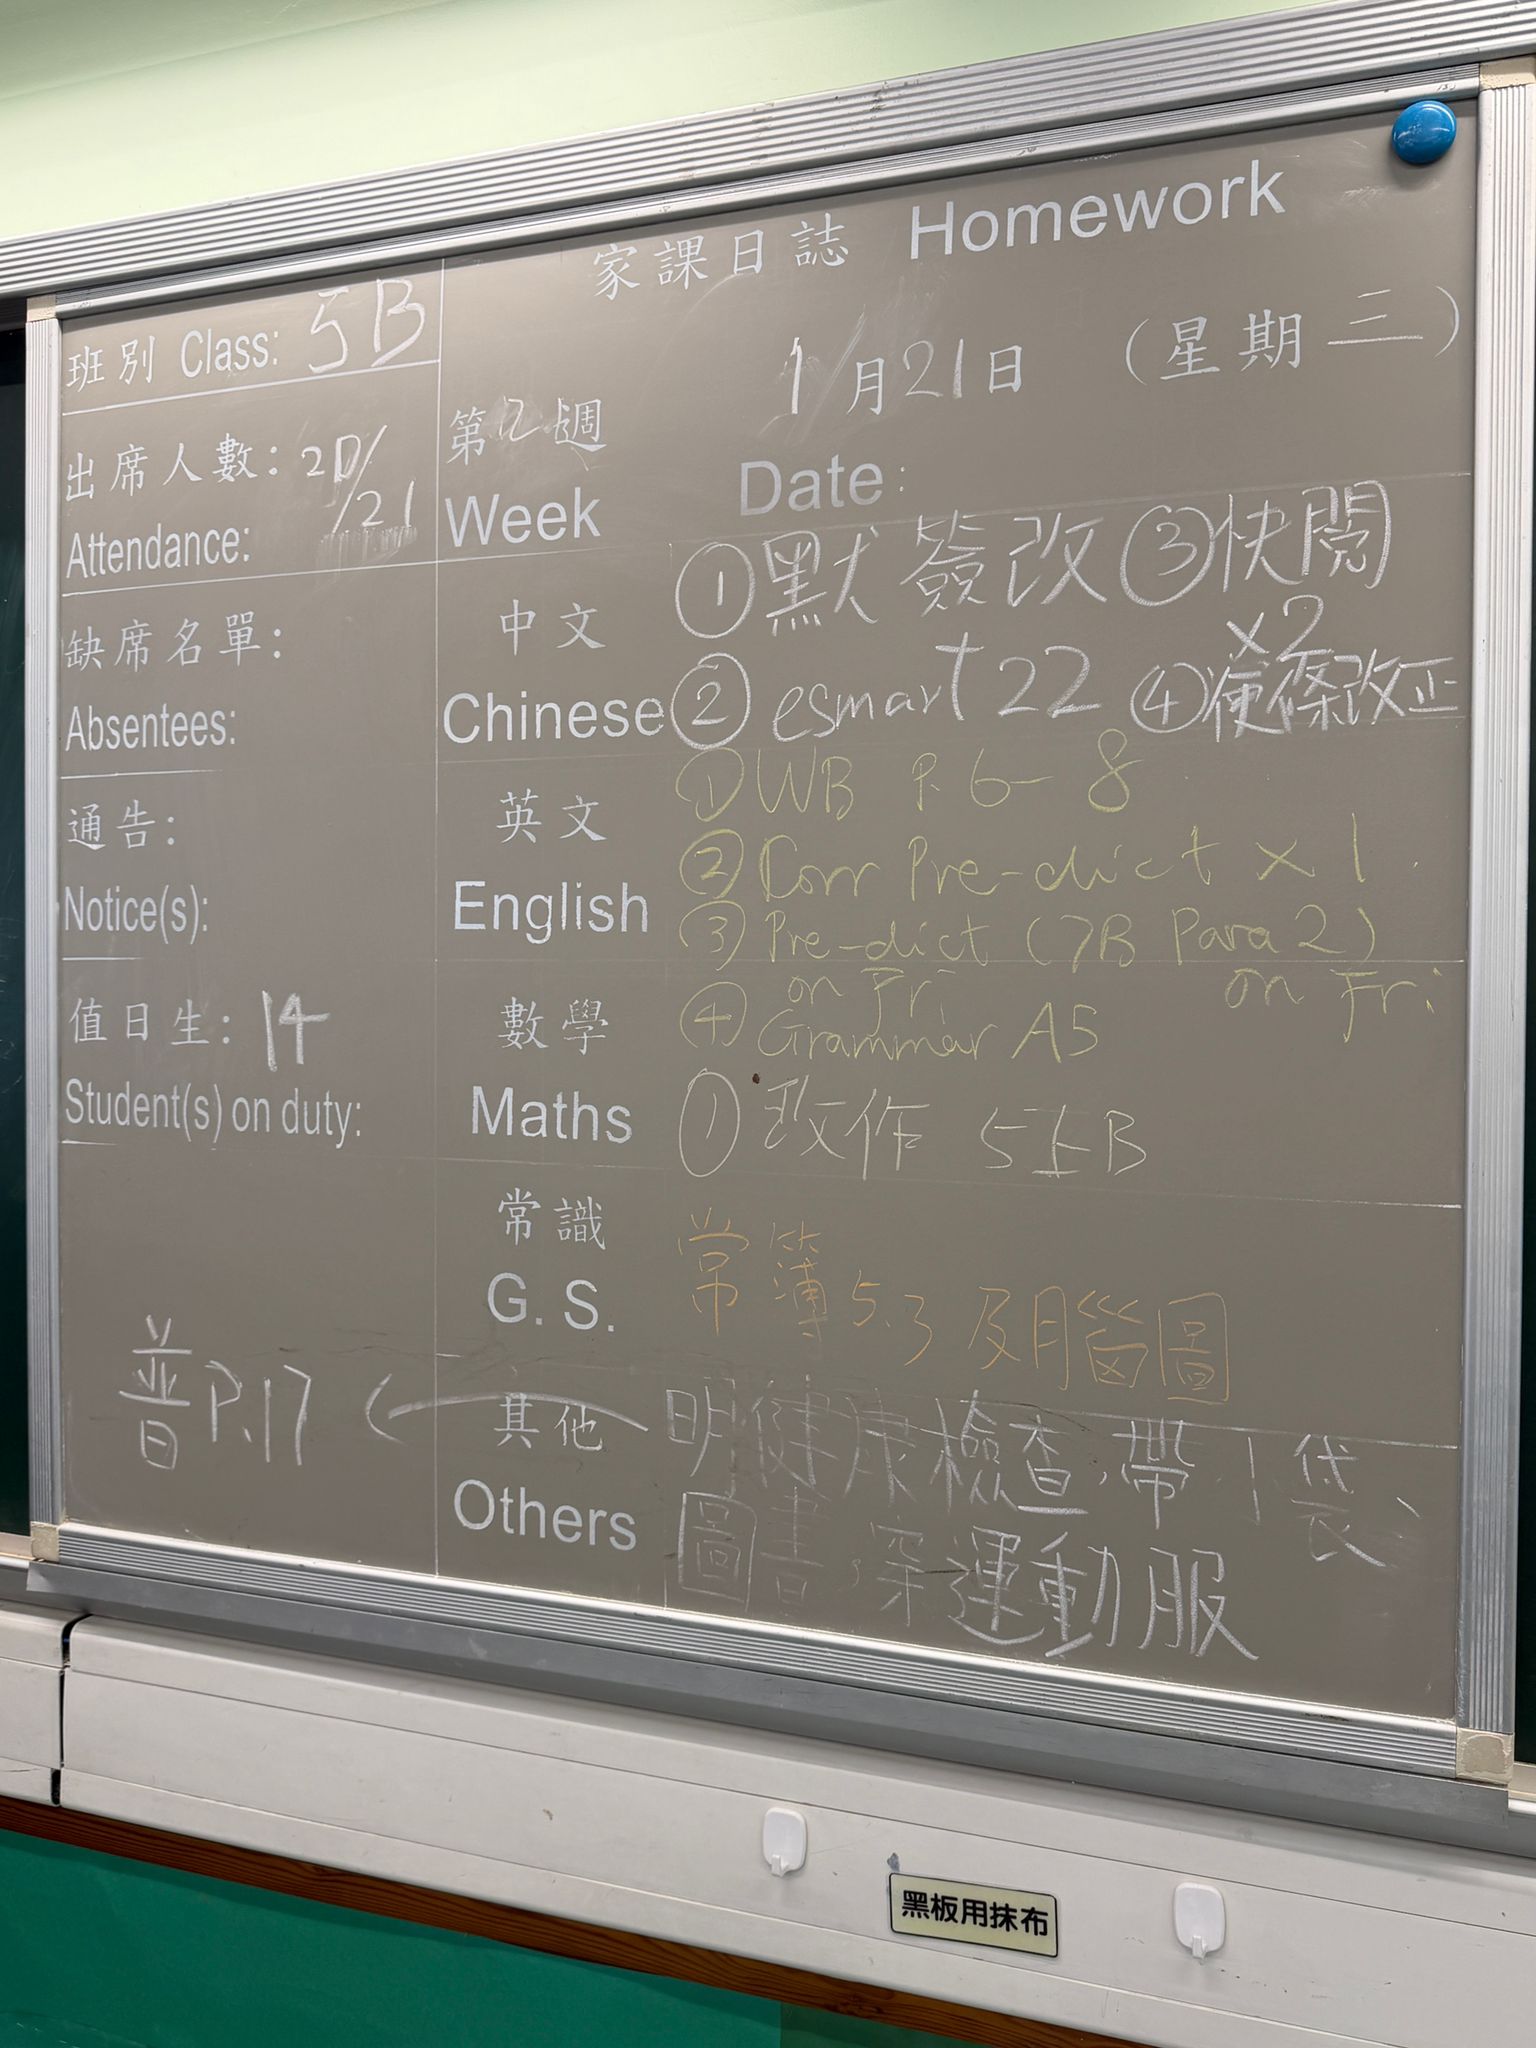 家課日誌 Homework
班別 Class: 5B
1月21日 (星期三)
Date:
出席人數: 20/21
Attendance:
第 週
Week
缺席名單:
Absentees:
通告:
Notice(s):
值日生: 14
Student(s) on duty:
普P.17
中文
Chinese
①默簽改 ③快閱x2
②esmart 22 ④便條改正
英文
English
①WB P.6-8
②Corr Pre-dict x1
③Pre-dict (7B Para 2)
on Fri.
on Fri.
④Grammar A5
數學
Maths
①改作 5上B
常識
G. S.
常簿5.3及腦圖
其他
Others
明健康檢查,帶小袋、
圖書,穿運動服
黑板用抹布